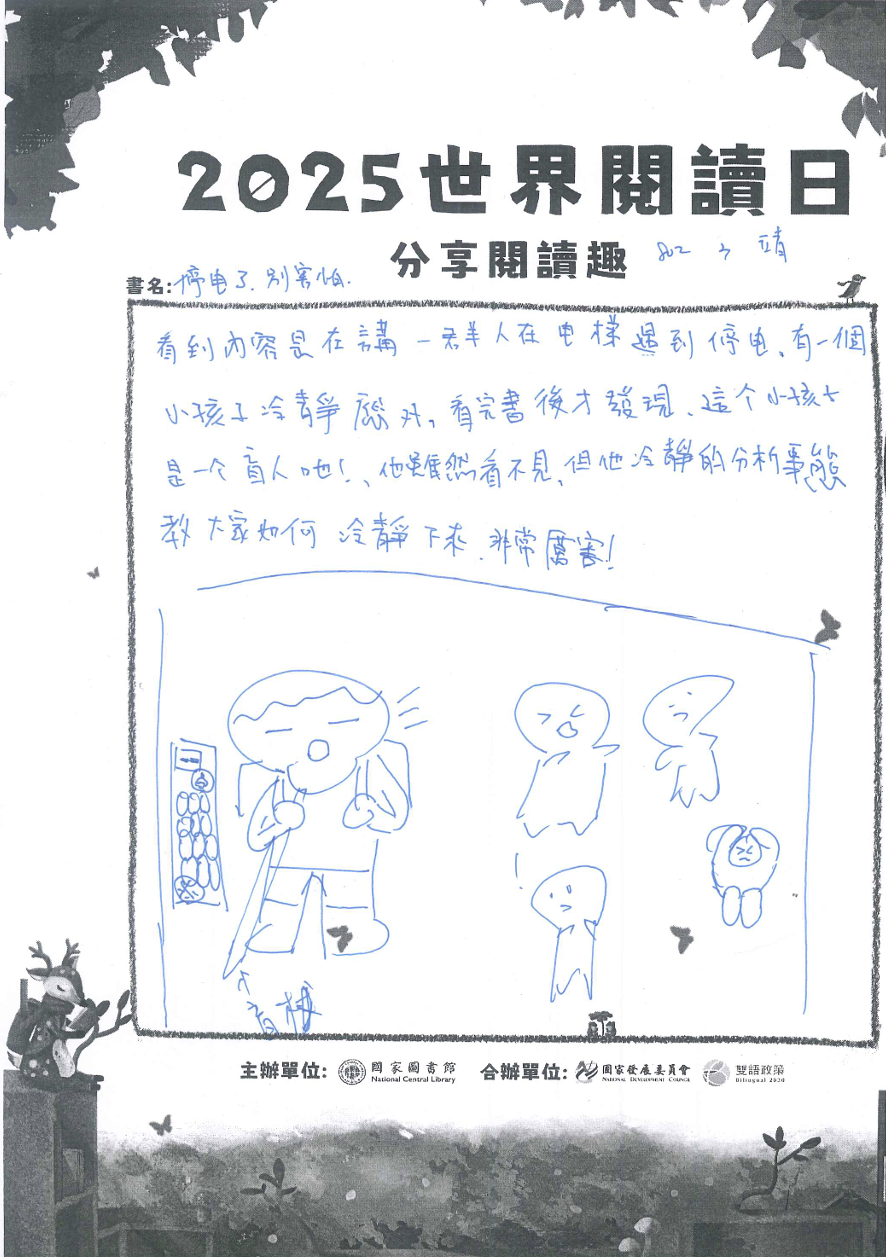 2025世界閱讀日
分享閱讀趣 802 靖
書名:停电了、別害怕.
看到內容是在講一羣人在电梯遇到停电、有一個
小孩子冷靜應对,看完書後才發現、這个小孩
是一个盲人吔!、他雖然看不見、但他冷靜的分析事態
教大家如何冷靜下來、非常厲害!
盲杖
主辦單位: 國家圖書館 合辦單位: 國家發展委員會 雙語政策
National Central Library NATIONAL DEVELOPMENT COUNCIL Bilingual 2030